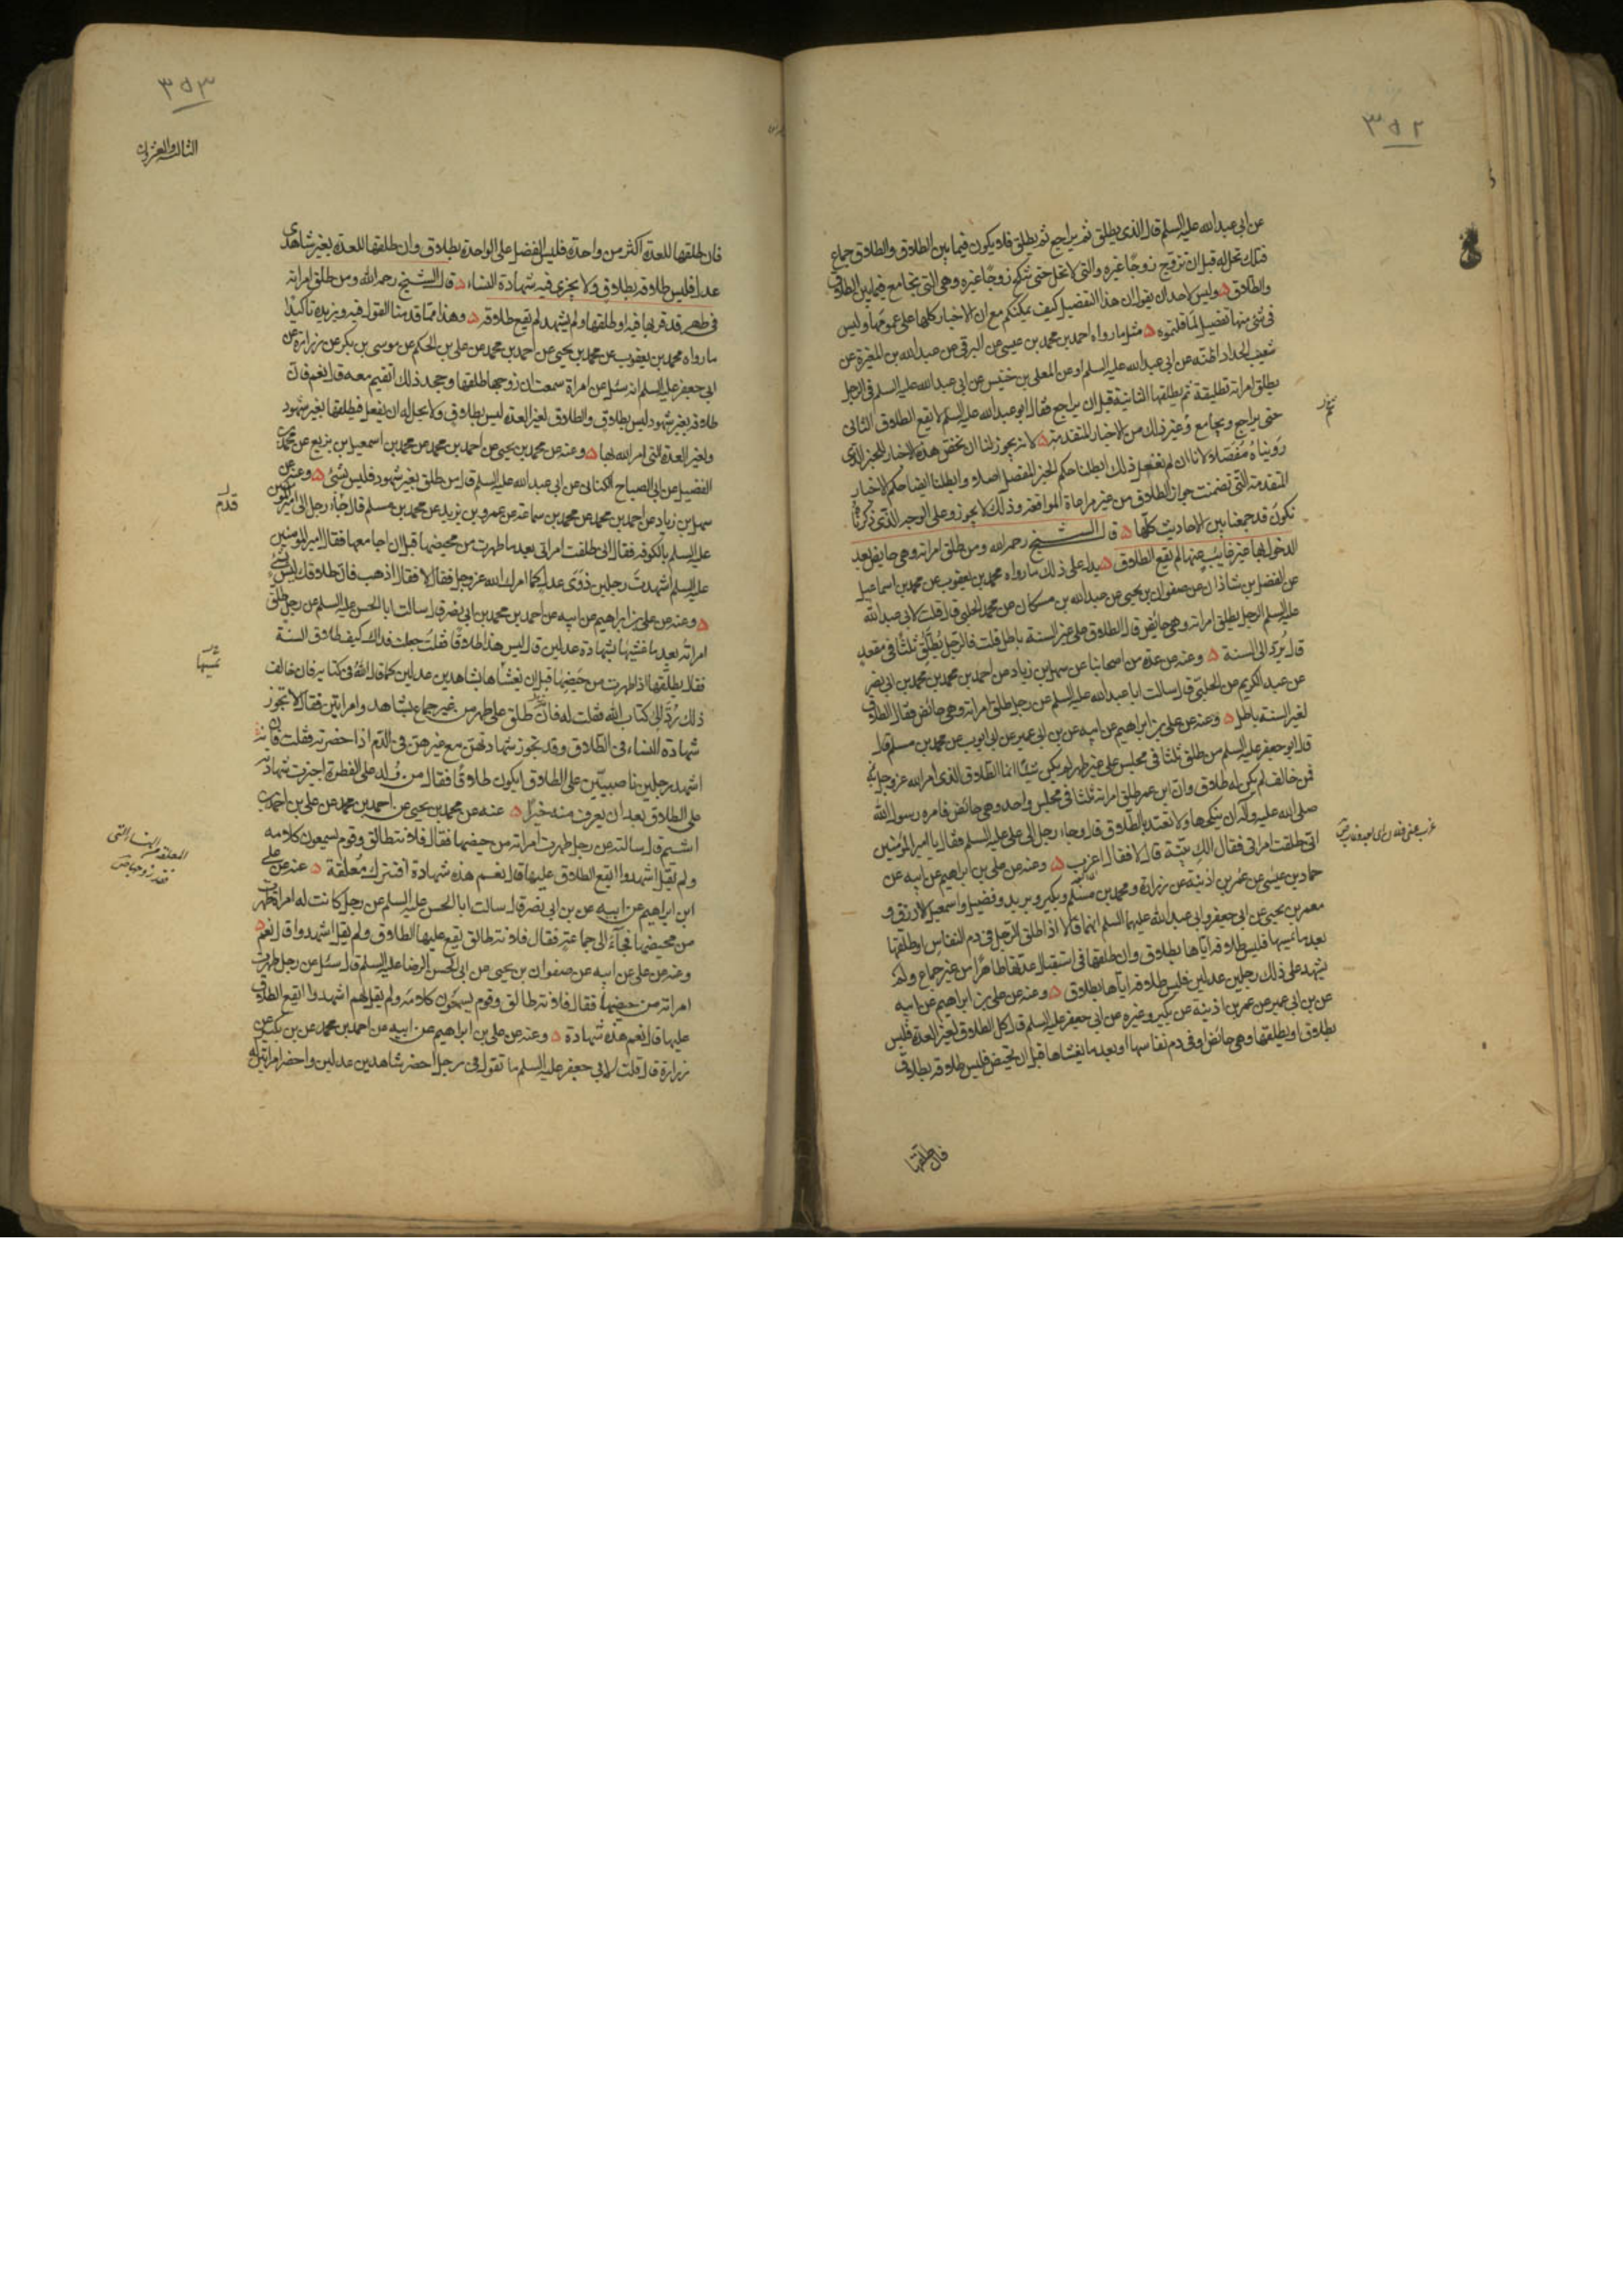 ٣٥٢
عن ابي عبد الله عليه السلم قال الذي يطلق ثم يراجع ثم يطلق فلا يكون فيما بين الطلاق والطلاق جماع
فتلك تحل له قبل ان تزوج زوجًا غيره والتي لا تحل حتى تنكح زوجًا غيره وهي التي تجامع فيما بين الطلاق
والطلاق ۵ وليس لاحد ان يقول ان هذا التفضيل كيف يمكنكم مع ان الاخبار كلها على عمومها وليس
في شئ منها تفضيل لما قلتموه ۵ مثل ما رواه احمد بن محمد بن عيسى عن البرقي عن عبد الله بن المغيرة عن
شعيب الحداد اظنه عن ابي عبد الله عليه السلم او عن المعلى بن خنيس عن ابي عبد الله عليه السلم في الرجل
يطلق امراته تطليقة ثم يطلقها الثانية قبل ان يراجع فقال ابو عبد الله عليه السلم لا يقع الطلاق الثاني
حتى يراجع ويجامع وغير ذلك من الاخبار المتقدمة ۵ لانه يجوز لنا ان نخص هذه الاخبار للخبر الذي
رويناه مفصلا لانا ان لم نفعل ذلك ابطلنا حكم الخبر المفصل اصلا وابطلنا ايضا حكم الاخبار
المتقدمة التي تضمنت جواز الطلاق من غير مراعاة المواقعة وذلك لا يجوز وعلى الوجه الذي ذكرنا
نكون قد جمعنا بين الاحاديث كلها ۵ قال الشيخ رحمه الله ومن طلق امراته وهي حايض بعد
الدخول بها غير غايب عنها لم يقع الطلاق ۵ يدل على ذلك ما رواه محمد بن يعقوب عن محمد بن اسماعيل
عن الفضل بن شاذان عن صفوان بن يحيى عن عبد الله بن مسكان عن محمد الحلبي قال قلت لابي عبد الله
عليه السلم الرجل يطلق امراته وهي حائض قال الطلاق على غير السنة باطل قلت فالرجل يطلق ثلثا في مقعد
قال يرد الى السنة ۵ وعنه عن عدة من اصحابنا عن سهل بن زياد عن احمد بن محمد بن محمد بن ابي نصر
عن عبد الكريم عن الحلبي قال سالت ابا عبد الله عليه السلم عن رجل طلق امراته وهي حائض فقال الطلاق
لغير السنة باطل ۵ وعنه عن علي بن ابراهيم عن ابيه عن بن ابي عمير عن ابي ايوب عن محمد بن مسلم قال
قال ابو جعفر عليه السلم من طلق ثلثا في مجلس على غير طهر لم يكن شيئًا انما الطلاق الذي امر الله عز وجل به
فمن خالف لم يكن له طلاق وان ابن عمر طلق امراته ثلثا في مجلس واحد وهي حائض فامره رسول الله
صلى الله عليه وآله ان ينكحها ولا تعتد بالطلاق قال وجاء رجل الى علي عليه السلم فقال يا امير المؤمنين
اني طلقت امراتي فقال الك بينة قال لا فقال اعزب ۵ وعنه عن علي بن ابراهيم عن ابيه عن
حماد بن عيسى عن عمر بن اذينة عن زرارة ومحمد بن مسلم وبكير وبريد وفضيل واسمعيل الازرق و
معمر بن يحيى عن ابي جعفر وابي عبد الله عليهما السلم انهما قالا اذا طلق الرجل في دم النفاس او طلقها
بعد ما يمسها فليس طلاقه اياها بطلاق وان طلقها في استقبال عدتها طاهرًا من غير جماع ولم
يشهد على ذلك رجلين عدلين فليس طلاقه اياها بطلاق ۵ وعنه عن علي بن ابراهيم عن ابيه
عن بن ابي عمير عن عمر بن اذينة عن بكير وغيره عن ابي جعفر عليه السلم قال كل الطلاق لغير العدة فليس
بطلاق او يطلقها وهي حائض او في دم نفاسها او بعد ما يغشاها قبل ان تحيض فليس طلاقه بطلاق
فان طلقها
٣٥٣
الثالث والعشرون
فان طلقها للعدة اكثر من واحدة فليس الفضل على الواحدة بطلاق وان طلقها للعدة بغير شاهدي
عدل فليس طلاقه بطلاق ولا يجزى فيه شهادة النساء ۵ قال الشيخ رحمه الله ومن طلق امراته
في طهر قد قربها فيه او طلقها ولم يشهد لم يقع طلاقه ۵ وهذا مما قدمنا القول فيه ويزيده تاكيدًا
ما رواه محمد بن يعقوب عن محمد بن يحيى عن احمد بن محمد عن علي بن الحكم عن موسى بن بكر عن زرارة عن
ابي جعفر عليه السلم انه سئل عن امراة سمعت ان زوجها طلقها وجحد ذلك اتقيم معه قال نعم فان
طلاقه بغير شهود ليس بطلاق والطلاق لغير العدة ليس بطلاق ولا يحل له ان يفعل فيطلقها بغير شهود
ولغير العدة التي امر الله بها ۵ وعنه عن محمد بن يحيى عن احمد بن محمد عن محمد بن اسمعيل بن بزيع عن محمد بن
الفضيل عن ابي الصباح الكناني عن ابي عبد الله عليه السلم قال من طلق بغير شهود فليس بشئ ۵ وعنه عن
سهل بن زياد عن احمد بن محمد عن محمد بن سماعة عن عمرو بن يزيد عن محمد بن مسلم قال جاء رجل الى امير المؤمنين
قدم
عليه السلم بالكوفة فقال اني طلقت امراتي بعد ما طهرت من محيضها قبل ان اجامعها فقال امير المؤمنين
عليه السلم اشهدت رجلين ذوي عدل كما امرك الله عز وجل فقال لا فقال اذهب فان طلاقك ليس بشئ
۵ وعنه عن علي بن ابراهيم عن ابيه عن احمد بن محمد بن ابي نصر قال سالت ابا الحسن عليه السلم عن رجل طلق
امراته بعد ما غشيها بشهادة عدلين قال ليس هذا طلاقًا فقلت جعلت فداك كيف طلاق السنة
فقال يطلقها اذا طهرت من حيضها قبل ان يغشاها بشاهدين عدلين كما قال الله في كتابه فان خالف
ذلك رد الى كتاب الله فقلت له فان طلق على طهر من غير جماع بشاهد وامراتين فقال لا تجوز
شهادة النساء في الطلاق وقد تجوز شهادتهن مع غيرهن في الدم اذا حضرته فقلت فان
اشهد رجلين ناصبيين على الطلاق ايكون طلاقًا فقال من ولد على الفطرة اجيزت شهادته
على الطلاق بعد ان يعرف منه خيرًا ۵ عنه عن محمد بن يحيى عن احمد بن محمد عن علي بن احمد بن
اشيم قال سالته عن رجل طهرت امراته من حيضها فقال فلانة طالق وقوم يسمعون كلامه
ولم يقل اشهدوا ايقع الطلاق عليها قال نعم هذه شهادة افتترك معلقة ۵ عنه عن علي
ابن ابراهيم عن ابيه عن بن ابي نصر قال سالت ابا الحسن عليه السلم عن رجل كانت له امراة طهرت
من محيضها فجاء الى جماعة فقال فلانة طالق يقع عليها الطلاق ولم يقل اشهدوا قال نعم ۵
وعنه عن علي عن ابيه عن صفوان بن يحيى عن ابي الحسن الرضا عليه السلم قال سئل عن رجل طهرت
امراته من حيضها فقال فلانة طالق وقوم يسمعون كلامه ولم يقل لهم اشهدوا ايقع الطلاق
عليها قال نعم هذه شهادة ۵ وعنه عن علي بن ابراهيم عن ابيه عن احمد بن محمد عن بن بكير عن
زرارة قال قلت لابي جعفر عليه السلم ما تقول في رجل احضر شاهدين عدلين واحضر امراتين له
المعلقة من النساء التي
فقد زوجها